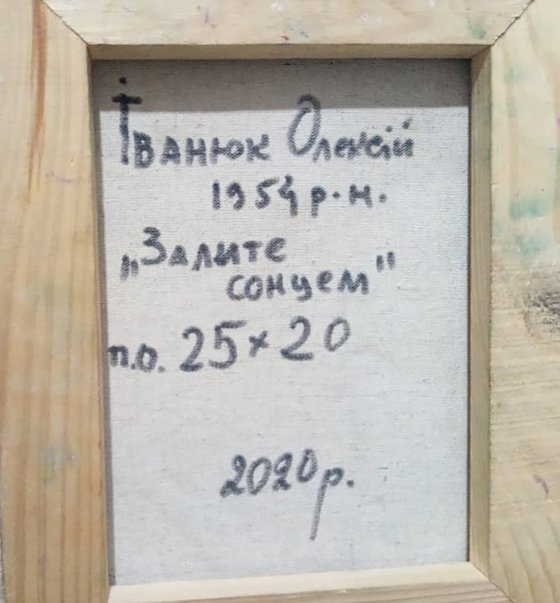 Іванюк Олексій
1954 р.н.
„Залите
сонцем"
п.о. 25×20
2020р.